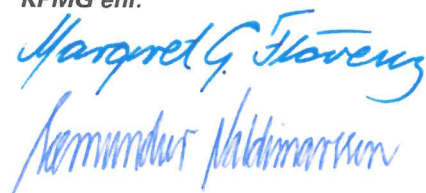 KPMG ehf.
Margret G. Flóvenz
Sæmundur Valdimarsson